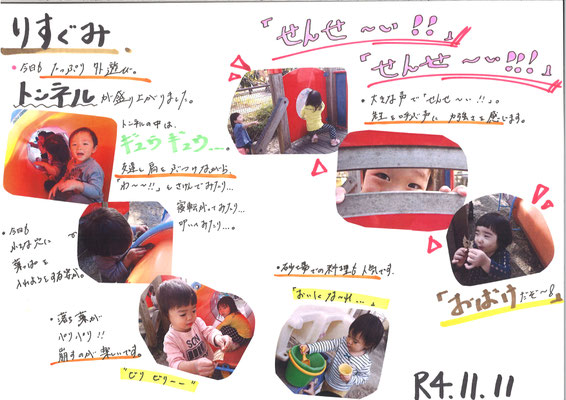 りすぐみ
・今日も たっぷり 外遊び。
トンネルが盛り上がりました。
トンネルの中は、
ギュウギュウ…。
友達と肩をぶつけながら
「わ〜〜!!」とさけんでみたり…
寝転がってみたり…
叩いてみたり…。
・今日も
小さな穴に
葉っぱを
入れようとする姿が。
・落ち葉が
パリパリ!!
崩すのが楽しいです。
"ビリ ビリーー"
「せんせ〜い!!」
「せんせ〜い!!!」
・大きな声で「せんせ〜い!!」。
先生を呼ぶ声に 力強さを感じます。
「おばけだぞ〜!」
・砂場での料理も人気です。
「おいしくな〜れ…」
R4.11.11